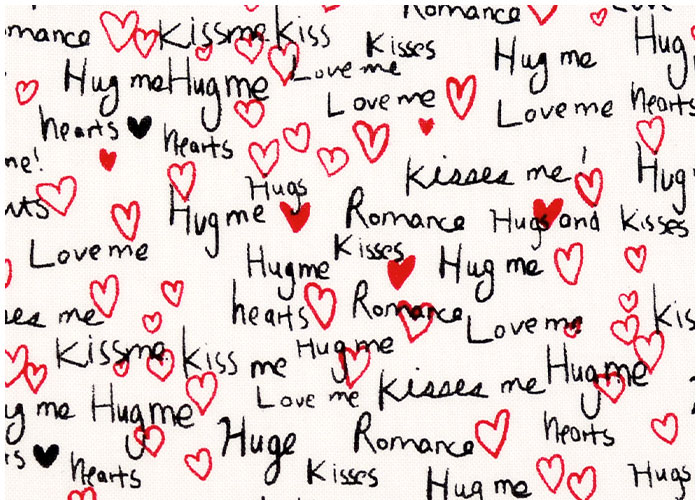 Romance
mance Kissme kiss
Kisses
Hug me
Hug
Hug me Hug me Love me
Love me
Love me
hearts
hearts
hearts
me!
Kisses me!
Hug
Hugs
Hug me
Romance
Hugs and Kisses
Love me
Kisses
Hug me
Hug me
hearts
Romance
Love me
kis
es me
Kissme kiss me
Hug me
Hug me
Love me
Kisses me
g me
Hug me
Huge
Romance
hearts
rs
hearts
Kisses
Hug me
Hugs